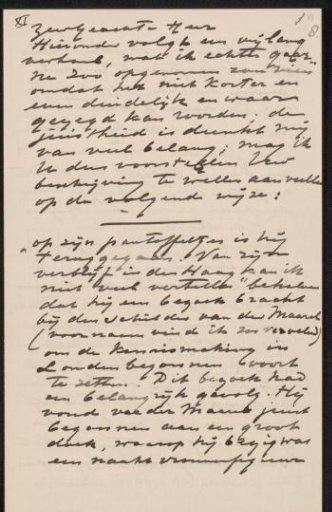 XI
Zeer Geachte Heer
Hieronder volgt een vrij lang
verhaal, wat ik echter gaar-
ne zoo opgenomen zou zien
omdat het niet korter en
even duidelijk en waar
gezegd kan worden; de
juistheid is dunkt mij
van veel belang; mag ik
U dus voorstellen Uw
beschrijving te willen aanvullen
op de volgende wijze:
"op zijn pantoffeltjes is hij
teruggegaan. Van zijn
verblijf in den Haag kan ik
niet veel vertellen" behalve
dat hij een bezoek bracht
bij den schilder van der Maarel
(voornaam vind ik zoo vervelend)
om de kennismaking in
Londen begonnen voort
te zetten. Dit bezoek had
een belangrijk gevolg. Hij
vond van der Maarel juist
begonnen aan een groot
doek, waarop hij bezig was
een naakt vrouwenfiguur